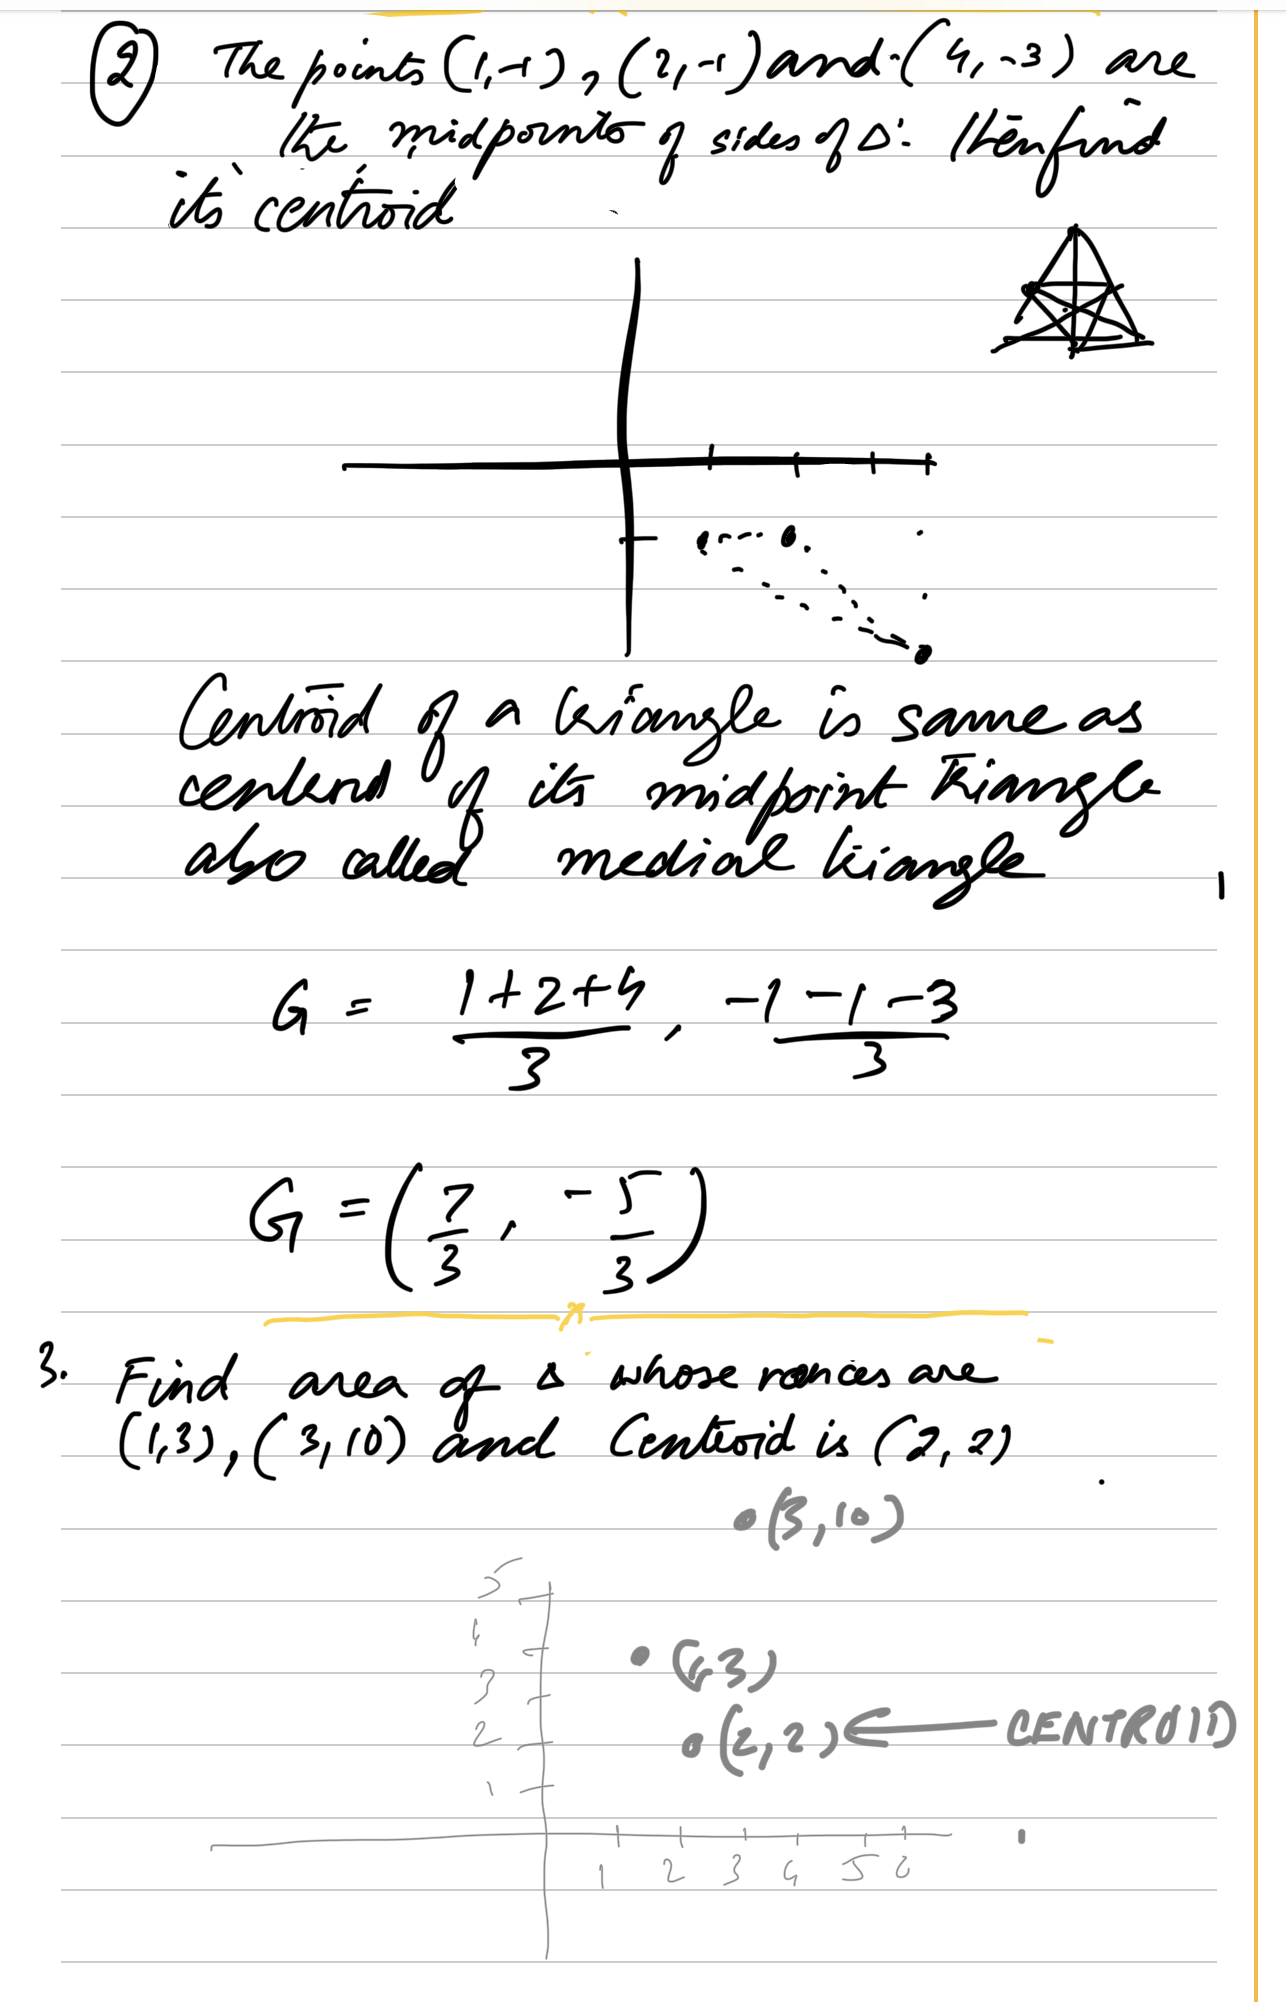 2 The points (1,-1), (2,-1) and (4,-3) are
the midpoints of sides of Δ. Then find
its centroid
Centroid of a triangle is same as
centroid of its midpoint triangle
also called medial triangle
G = 1+2+4/3, -1-1-3/3
G = (7/3, -5/3)
3. Find area of Δ whose are
(1,3), (3,10) and Centroid is (2,2)
(3,10)
5
4
(1,3)
3
2
(2,2) ← CENTROID
1
1 2 3 4 5 6